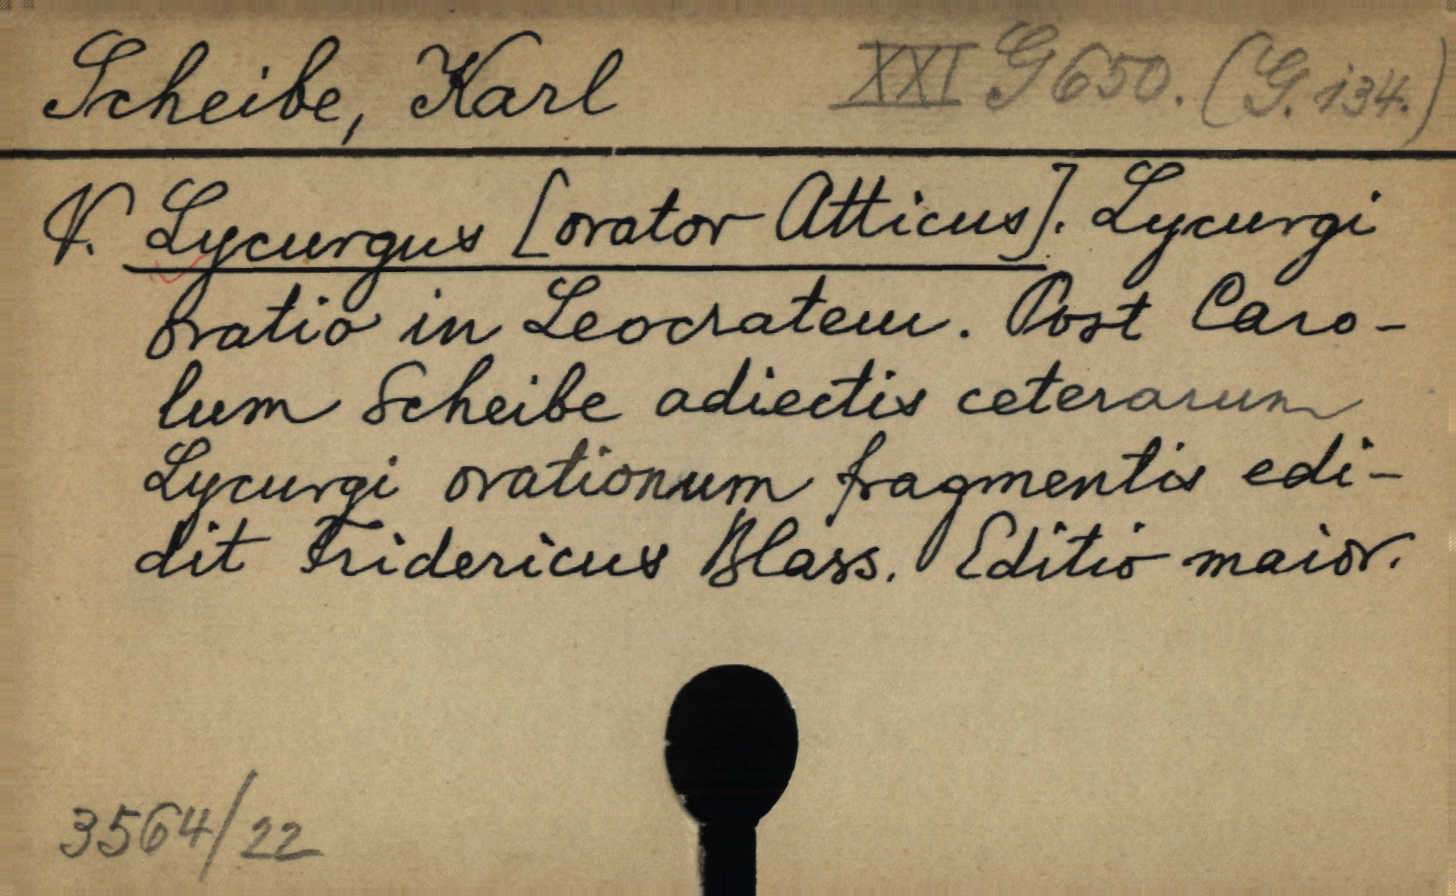 Scheibe, Karl XXI G 650. (G. 134.)
V. Lycurgus [orator Atticus]. Lycurgi
oratio in Leocratem. Post Caro-
lum Scheibe adiectis ceterarum
Lycurgi orationum fragmentis edi-
dit Fridericus Blass. Editio maior.
3564/22